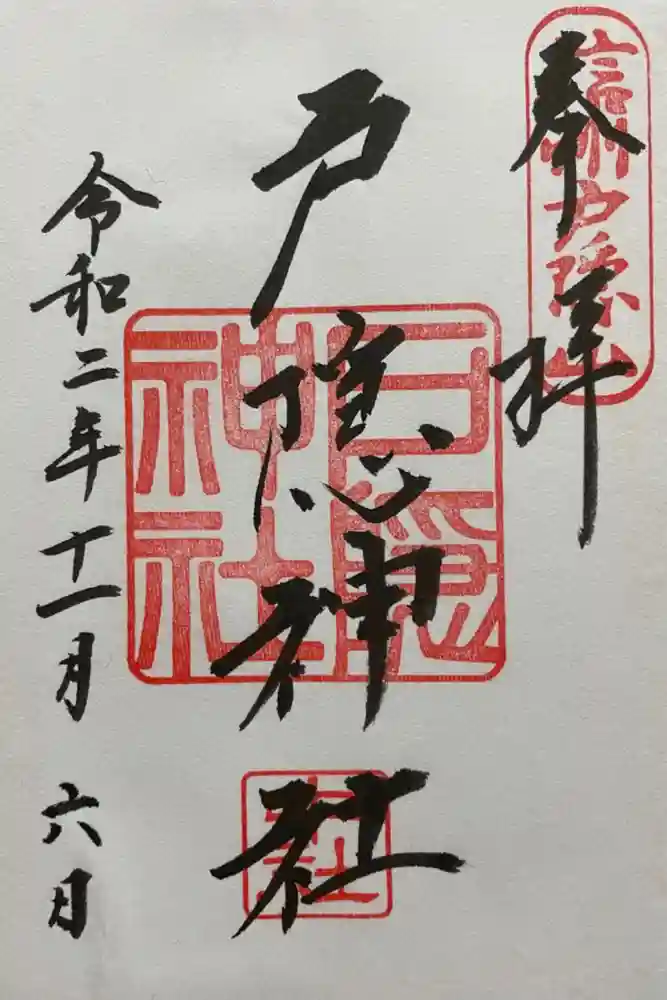 奉拝
信州戸隠山
戸隠神社
戸隠神社
令和二年十一月六日